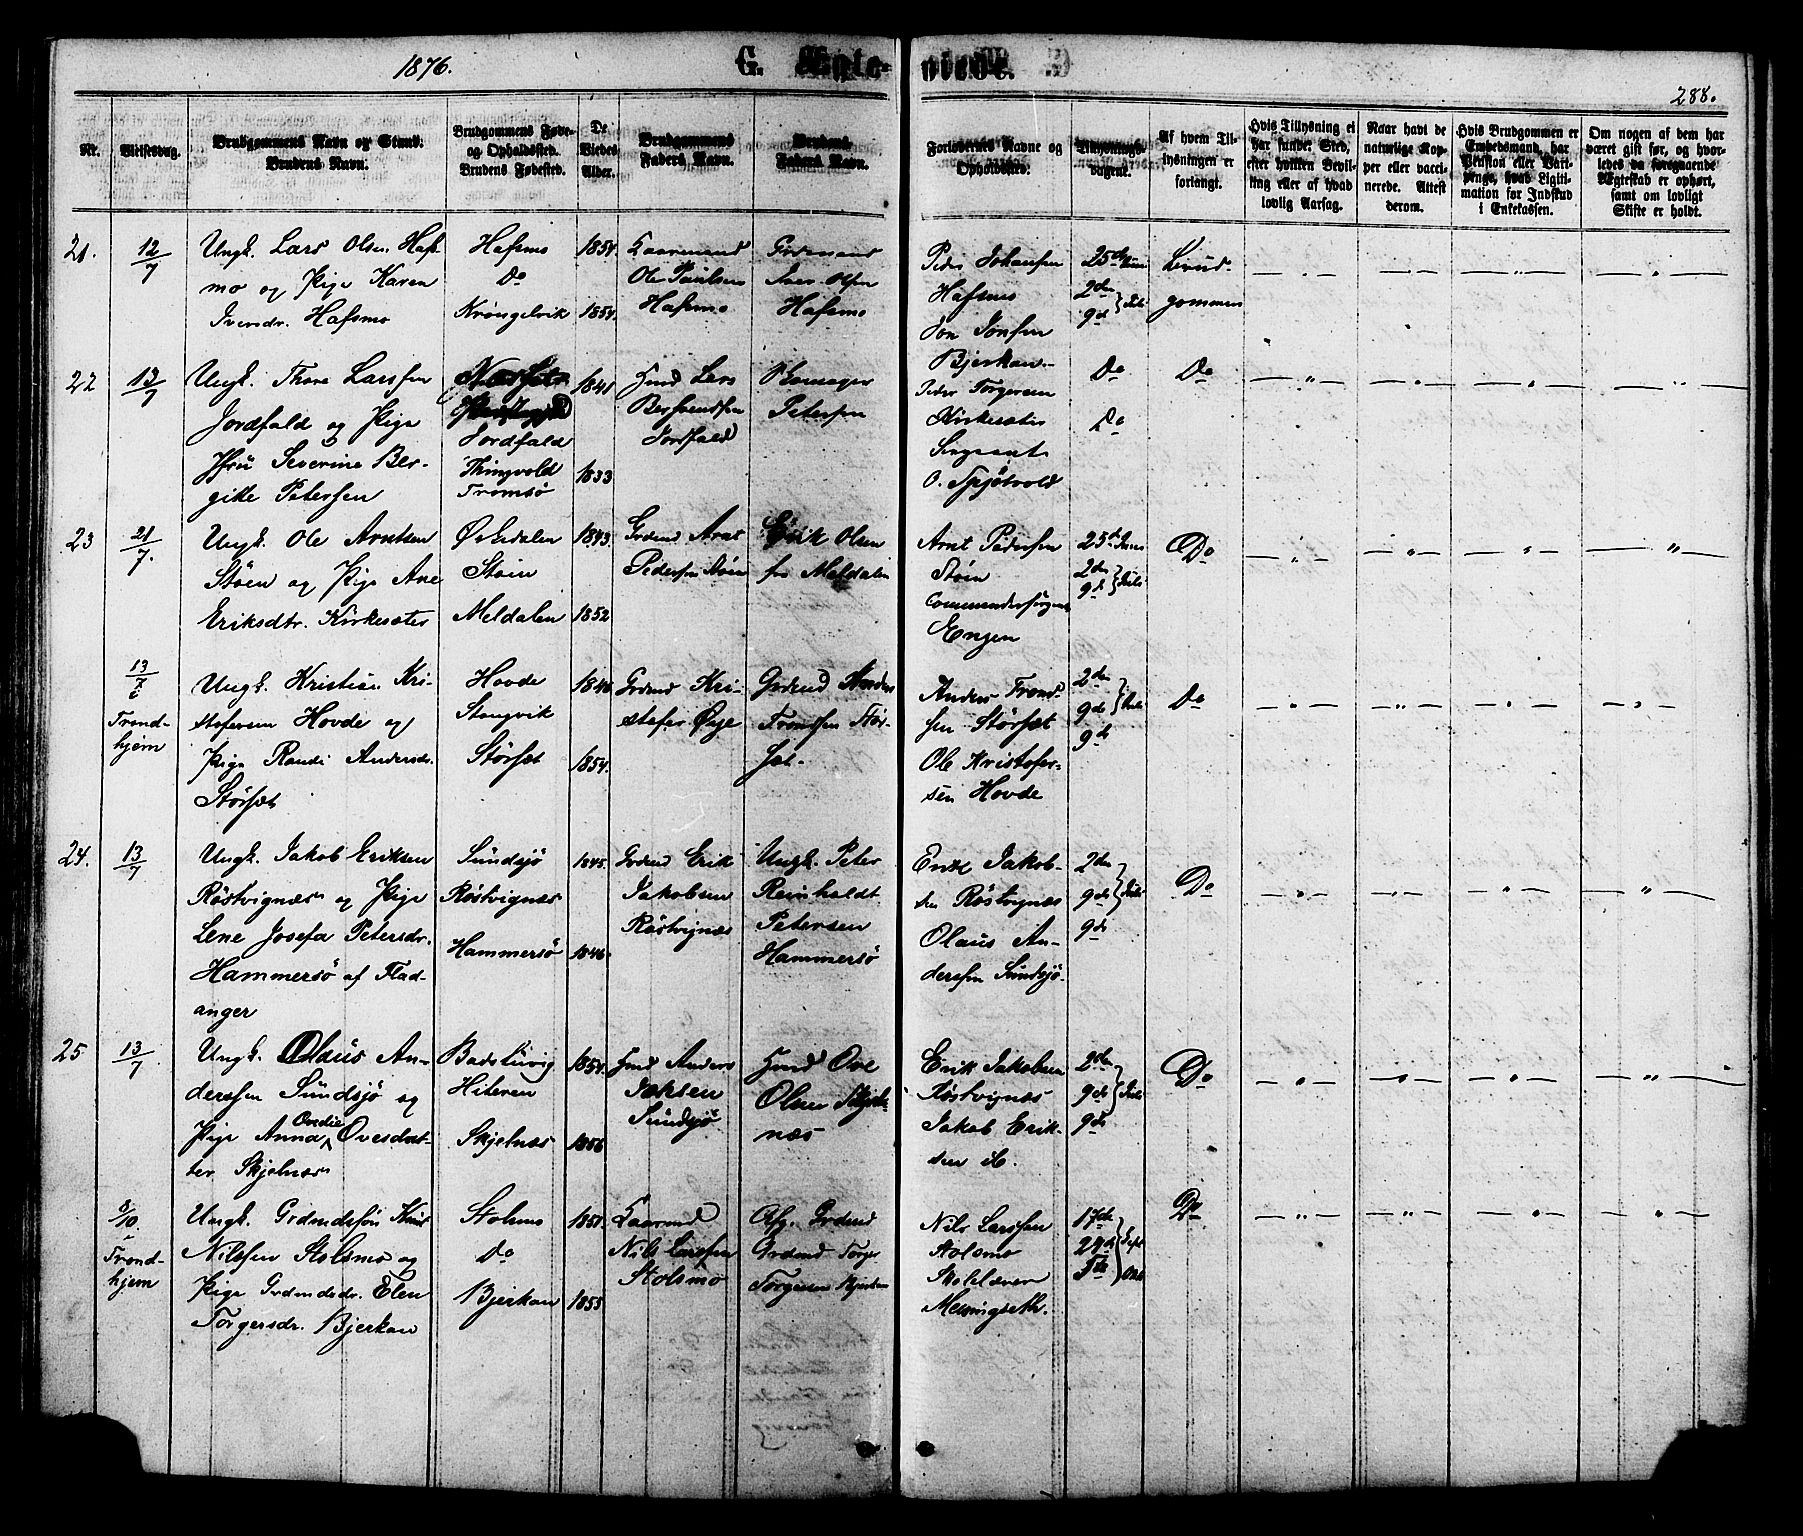 1876.
G. Ægte-
viede.
288.
Nr.
Vielsesdag.
Brudgommens Navn og Stand.
Brudens Navn.
Brudgommens Føde-
og Opholdssted.
Brudens Fødested.
De
Viedes
Alder.
Brudgommens
Faders Navn.
Brudens
Faders Navn.
Forlovernes Navne og
Opholdssted.
Tillysnings-
dagene.
Af hvem Til-
lysningen er
forlangt.
Hvis Tillysning ei
har fundet Sted,
efter hvilken Bevil-
ling eller af hvad
lovlig Aarsag.
Naar havt de
naturlige Kop-
per eller vacci-
nerede. Attest
derom.
Hvis Brudgommen er
Embedsmand, har
Pension eller Vart-
penge, hvad Ligiti-
mation for Indskud
i Enkekassen.
Om nogen af dem har
været gift før, og hvor-
ledes da foregaaende
Ægteskab er ophørt,
samt om lovligt
Skifte er holdt.
21.
12/7
Ungk. Lars Olsen Hafs-
mo og Pige Karen
Iversdr. Hafsmo
Hafsmo
Do
Vrøngelvik
1854
1854.
Kaarmand
Ole Paulsen
Hafsmo
Grdmand
Iver Olsen
Hafsmo
Peder Johansen
Hafsmo
Jon Jonsen
Bjerkan
25de Juni
2den
9de Juli
Brud-
gommen
22
13/7
Ungk. Thore Larssen
Jordfald og Pige
Jfru Severine Ber-
gitte Petersen
Jordfald
Thingvold
Tromsø
1841
1833
Hmd Lars
Bersvendsen
Jordfald
Petersen
Peder Torgersen
Kirkesæter
Sergeant
O. Spjøtvold
Do
Do
Do
23
21/7.
Ungk. Ole Arntsen
Støen og Pige Ane
Eriksdtr. Kirkesæter
Ørkedalen
Støen
Meldalen
1843
1852
Grdmd Arnt
Pedersen Støen
Erik Olsen
fra Meldalen
Arnt Pedersen
Støen
Commandersergeant
Engen
25de Juni
2den
9de Juli
Do
13/7
i
Trond-
hjem
Ungk. Kristian Kri-
stofersen Hovde og
Pige Randi Andersdr.
Størset
Hovde
Stangvik
Størset
1846
1854.
Grdmd Kri-
stofer Øye
Grdmd Anders
Tronsen Stør-
set.
Anders Trond-
sen Størset
Ole Kristofer-
sen Hovde
2den
9de Juli
9de
Do
24.
13/7
Ungk. Jakob Eriksen
Røstvignæs og Pige
Lene Josefa Petersdr.
Hammersø af Flad-
anger
Sundsjø
Røstvignæs
Hammersø
1845.
1846.
Grdmd Erik
Jakobsen
Røstvignæs
Ungk. Peter
Reinholdt
Petersen
Hammersø
Erik Jakob-
sen Røstvignæs
Olaus An-
derssen Sundsjø
2den
9de Juli
9de
Do
25
13/7
Ungk. Olaus An-
derssen Sundsjø og
Pige Anna Ondie Ovesdat-
ter Skjelnæs
Badstuvig
Hiteren
Skjelnæs
1854.
1856
Hmd Anders
Sundsjø
Hmd Ove
Olsen Skjel-
næs
Erik Jakobsen
Røstvignæs
Jakob Erik-
sen ib.
2den
9de Juli
9de
Do
8/10
i
Trond-
hjem
Ungk. Grdmdssøn Knut
Nilssen Stolsmo og
Pige Grdmdsdr. Elen
Torgersdr. Bjerkan
Stolsmo
Do
Bjerkan
1851.
1855
Kaarmd
Nils Larssen
Stolsmo
Afg. Grdmd
Grdmd Torger
Torgersen Bjerkan
Nils Larssen
Stolsmo
Skolelærer
Melingseth.
17de
24de Sept
Do